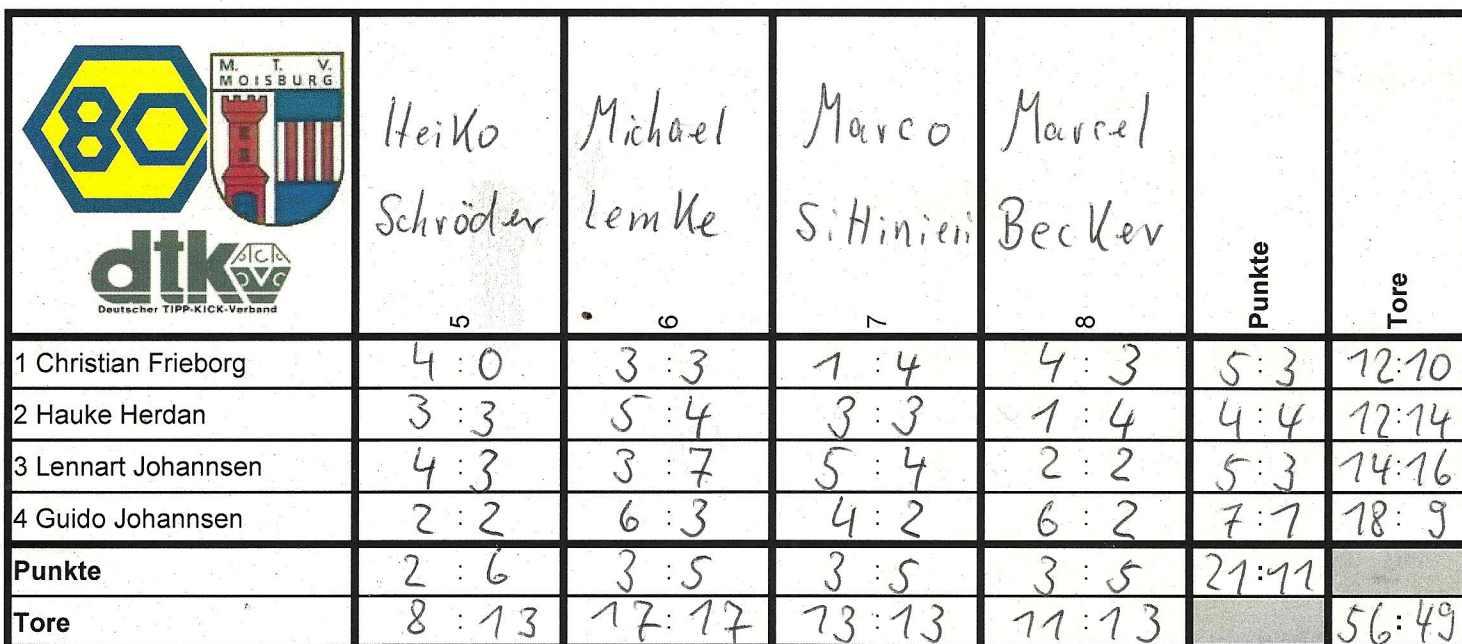 80
M. T. V.
MOISBURG
dtkv
Deutscher TIPP-KICK-Verband
Heiko Schröder 5
Michael Lemke 6
Marco Sittinieri 7
Marcel Becker 8
Punkte
Tore
1 Christian Frieborg 4 : 0 3 : 3 1 : 4 4 : 3 5 : 3 12:10
2 Hauke Herdan 3 : 3 5 : 4 3 : 3 1 : 4 4 : 4 12:14
3 Lennart Johannsen 4 : 3 3 : 7 5 : 4 2 : 2 5 : 3 14:16
4 Guido Johannsen 2 : 2 6 : 3 4 : 2 6 : 2 7 : 1 18: 9
Punkte 2 : 6 3 : 5 3 : 5 3 : 5 21:11
Tore 8 : 13 17: 17 13 : 13 11 : 13 56: 49